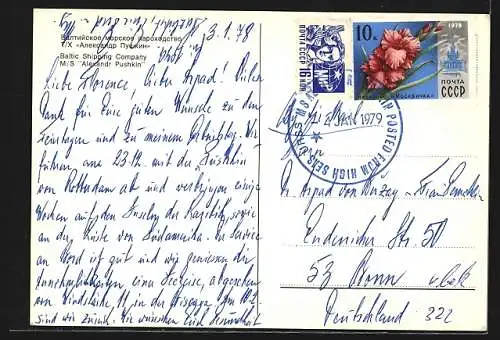 3.1.78
Балтийское морское пароходство
Т/Х «Александр Пушкин»
Baltic Shipping Company
M/S "Alexandr Pushkin"
Liebe Florence, lieber Arpad! Vielen
Dank für Eure guten Wünsche zu den
Feiertagen und zu meinem Geburtstag. Wir
fuhren am 23.12. mit der Puschkin
von Rotterdam ab und verbringen einige
Wochen auf den Inseln der Karibik, sowie
an der Küste von Südamerika. Der Service
an Bord ist gut und wir geniessen die
Annehmlichkeiten einer Seereise, abgesehen
von Windstärke 11 in der Biscaya. Am
sind wir zurück. Wir wünschen Euch
ПОЧТА СССР
16 КОП
10к
1978
ПОЧТА
СССР
POSTED FROM HIGH SEAS
M/S
2 JAN 1979
Dr. Arpad von
Endenicher Str. 50
53 Bonn
Deutschland 322